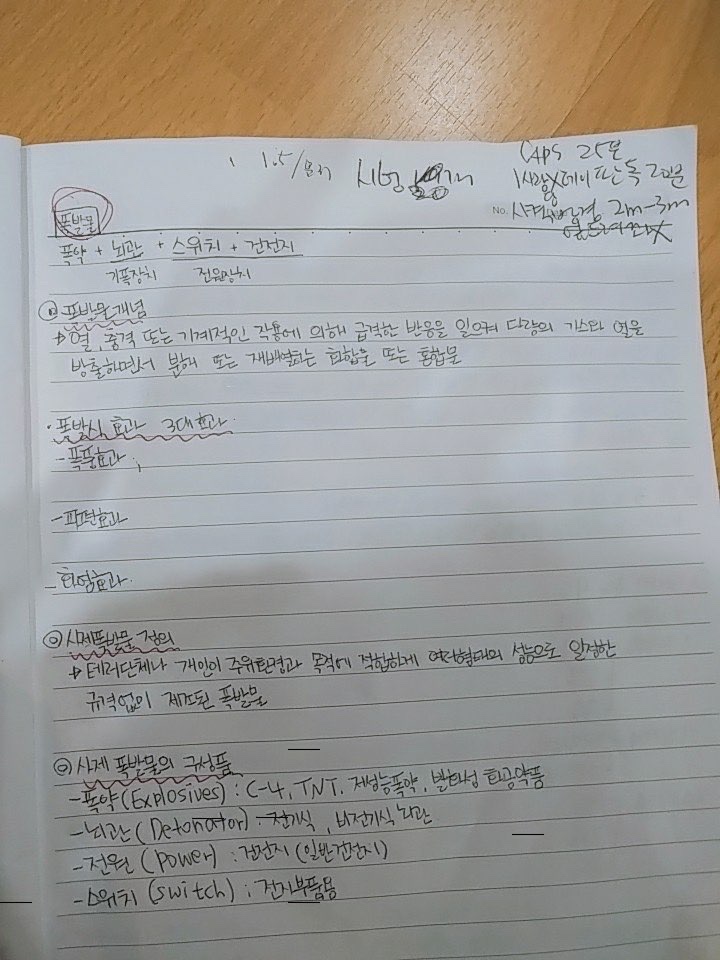 1.5/
시험
CAPS 25분
2m-3m
No.
폭발물
폭약 + 뇌관 + 스위치 + 건전지
기폭장치 전원장치
◎ 폭발물 개념
→ 열, 충격 또는 기계적인 작용에 의해 급격한 반응을 일으켜 다량의 가스와 열을
방출하면서 분해 또는 재배열되는 화합물 또는 혼합물
· 폭발시 효과 3대효과.
- 폭풍효과 ;
- 파편효과
- 화염효과.
◎ 사제폭발물 정의
→ 테러단체나 개인이 주위환경과 목적에 적합하게 여러형태의 성능으로 일정한
규격없이 제조된 폭발물
◎ 사제 폭발물의 구성품
- 폭약(Explosives) : C-4, TNT, 저성능폭약, 발화성 화공약품
- 뇌관(Detonator) : 전기식, 비전기식 뇌관
- 전원(power) : 건전지(일반건전지)
- 스위치(switch) : 전자부품용